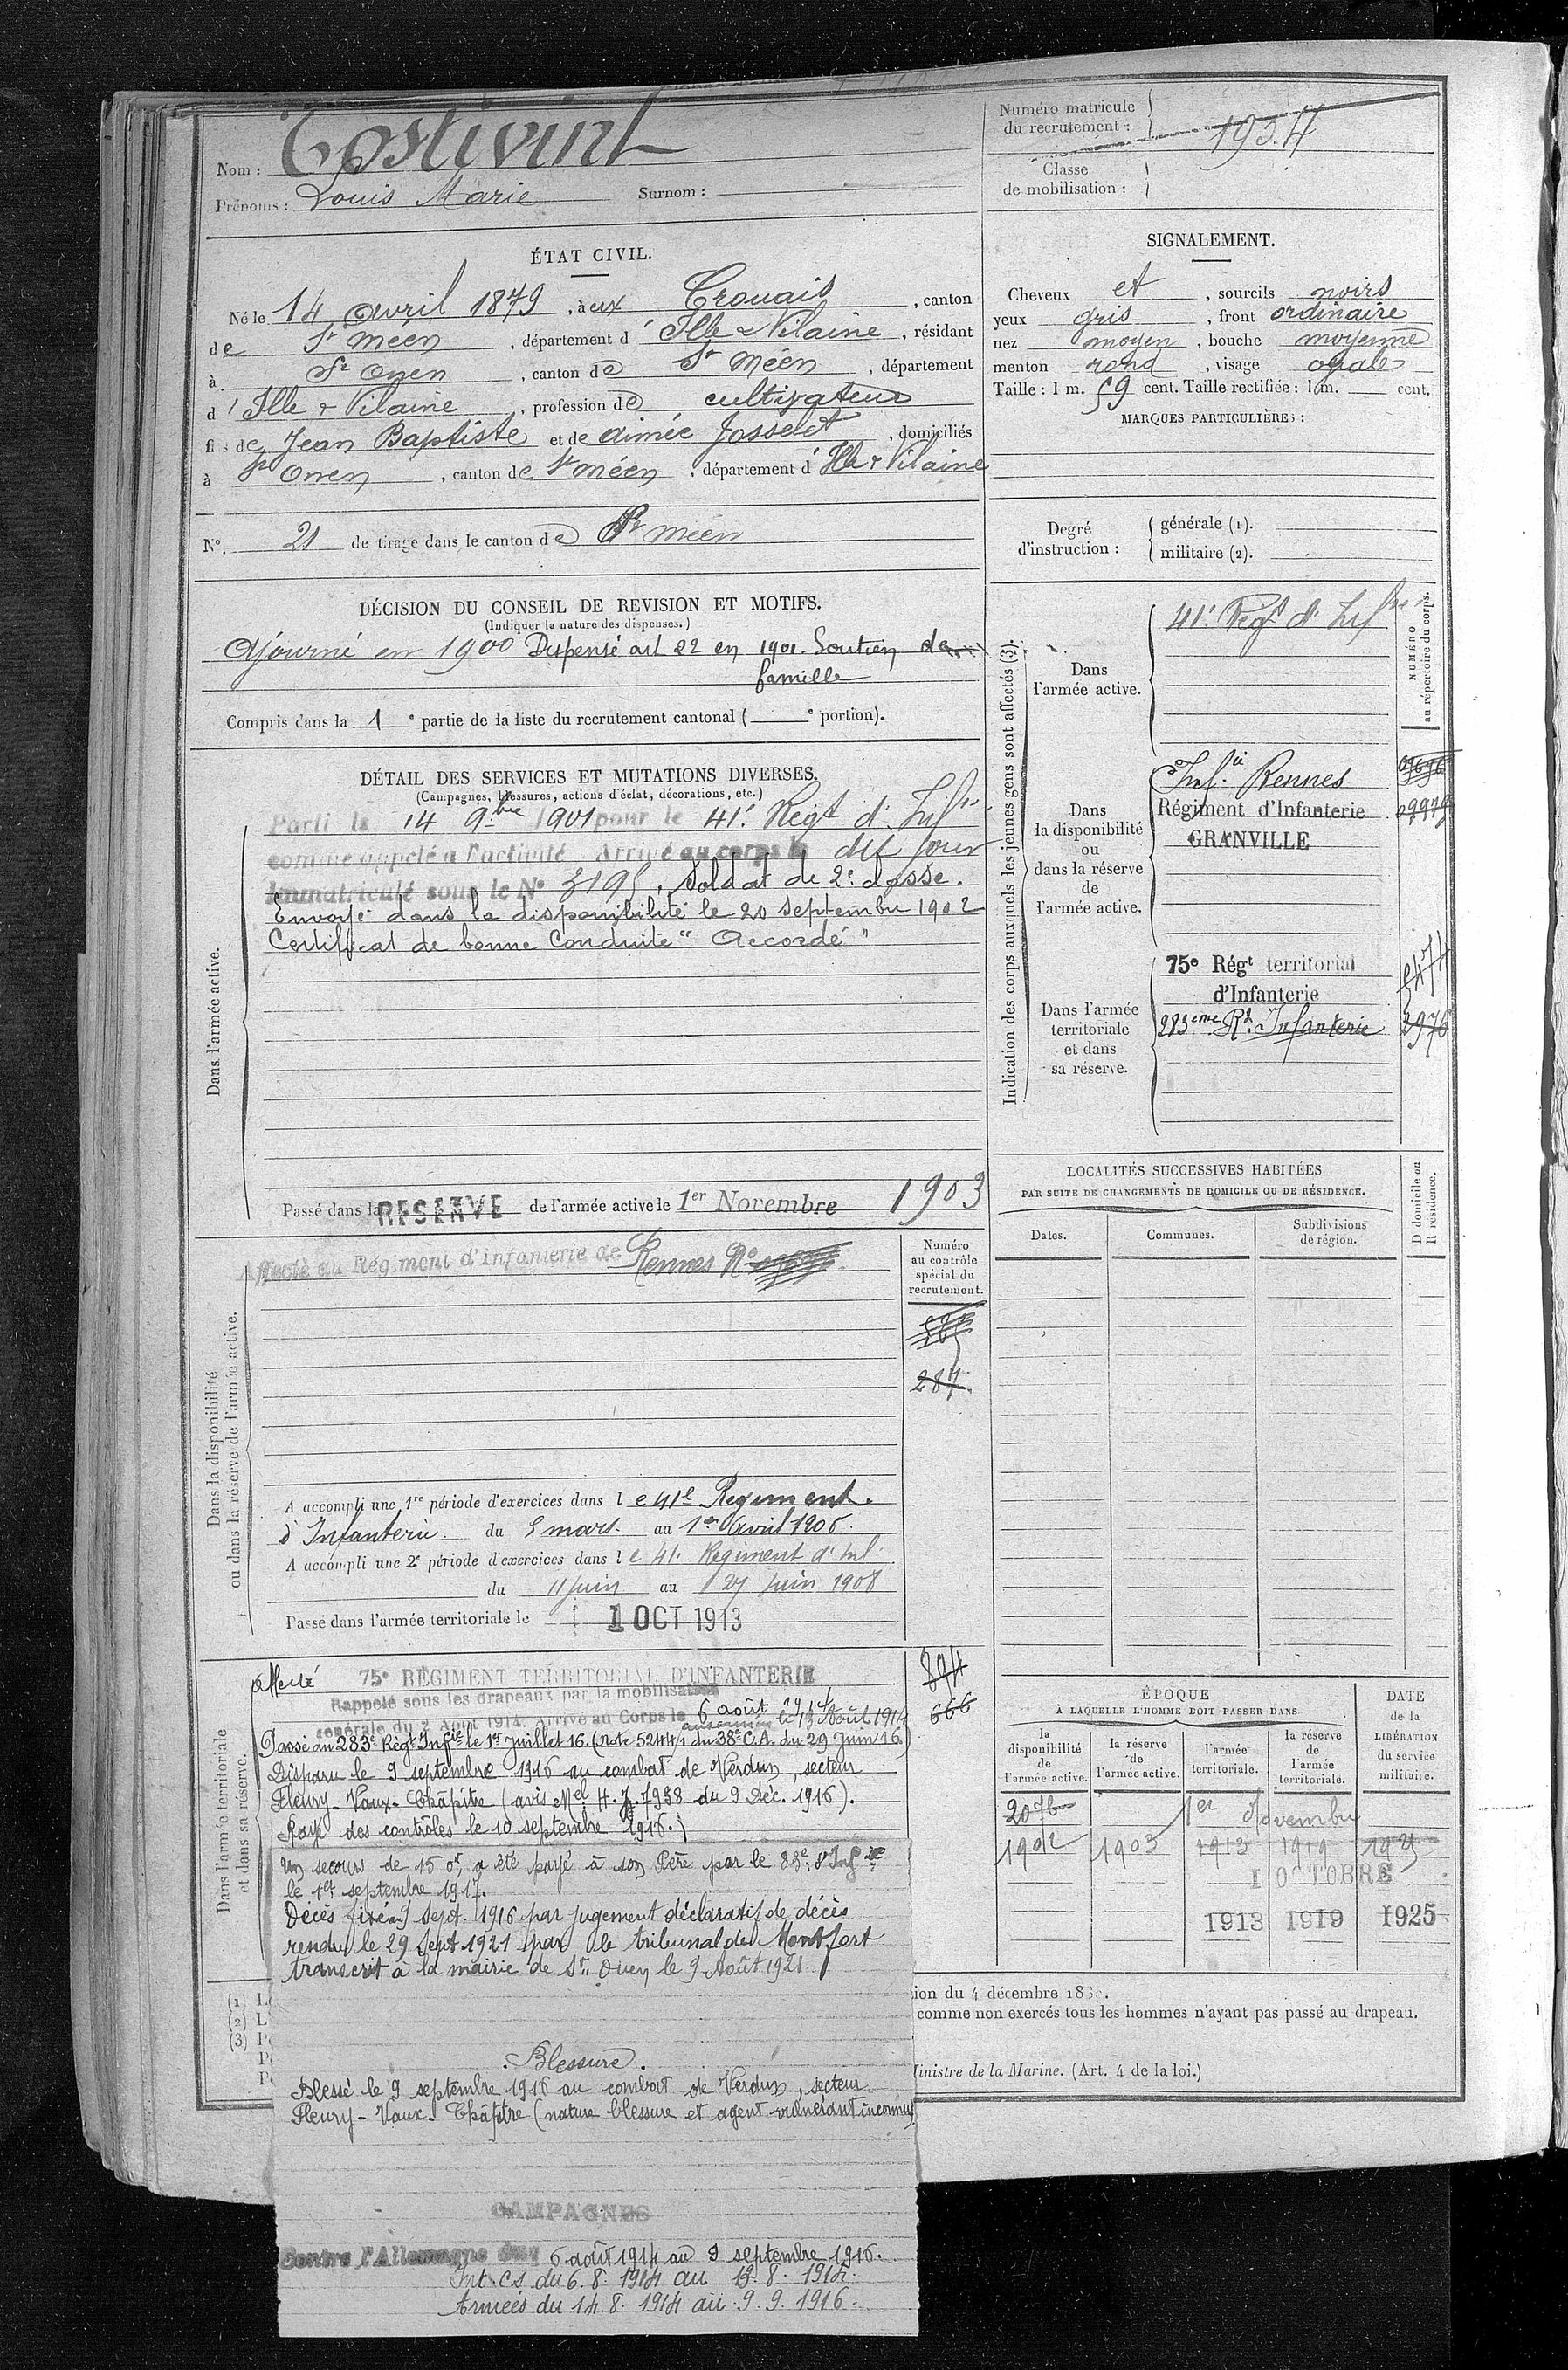 Nom : Tostivint
Prénoms : Louis Marie Surnom :
Numéro matricule du recrutement : 1954
Classe de mobilisation :
ÉTAT CIVIL.
Né le 14 avril 1879, à Crouais, canton
de St Méen, département d'Ille & Vilaine, résidant
à St Onen, canton de St Méen, département
d'Ille & Vilaine, profession de cultivateur
fils de Jean Baptiste et de Aimée Josselot, domiciliés
à St Onen, canton de St Méen, département d'Ille & Vilaine
N° 21 de tirage dans le canton de St Méen
SIGNALEMENT.
Cheveux et, sourcils noirs
yeux gris, front ordinaire
nez moyen, bouche moyenne
menton rond, visage ovale
Taille : 1 m. 59 cent. Taille rectifiée : 1 m. cent.
MARQUES PARTICULIÈRES :
Degré d'instruction :
générale (1).
militaire (2).
DÉCISION DU CONSEIL DE REVISION ET MOTIFS.
(Indiquer la nature des dispenses.)
Ajourné en 1900 Dispensé art 22 en 1901. Soutien de
famille
Compris dans la 1e partie de la liste du recrutement cantonal ( e portion).
DÉTAIL DES SERVICES ET MUTATIONS DIVERSES.
(Campagnes, blessures, actions d'éclat, décorations, etc.)
Dans l'armée active.
Parti le 14 9bre 1901 pour le 41e Régt d'Infie
comme appelé à l'activité Arrivé au corps le dit jour
Immatriculé sous le N° 3195, Soldat de 2e classe.
Envoyé dans la disponibilité le 20 septembre 1902
Certificat de bonne Conduite "Accordé"
Passé dans la RESERVE de l'armée active le 1er Novembre 1903
Dans la disponibilité
ou dans la réserve de l'armée active.
Affecté au Régiment d'Infanterie de Rennes N°
Numéro
au contrôle
spécial du
recrutement.
287
A accompli une 1re période d'exercices dans le 41e Régiment
d'Infanterie du 5 mars au 1er Avril 1906.
A accompli une 2e période d'exercices dans le 41e Régiment d'Inf
du 11 juin au 27 juin 1908
Passé dans l'armée territoriale le 1 OCT 1913
Dans l'armée territoriale
et dans sa réserve.
Affecté 75e RÉGIMENT TERRITORIAL D'INFANTERIE
894
666
Rappelé sous les drapeaux par la mobilisation
générale du 2 Août 1914. Arrivé au Corps le 6 août 1914
aux armées le 14 Août 1914
Passé au 283e Régt Infie le 1er Juillet 16. (note 5244/1 du 38e C.A. du 29 Juin 16)
Disparu le 9 septembre 1916 au combat de Verdun, secteur
Fleury-Vaux-Chapitre (avis Mel H.J. 7938 du 9 Déc. 1916).
Rayé des contrôles le 10 septembre 1916.
Un secours de 150f a été payé à son Père par le 83e d'Infie
le 1er septembre 1917.
Décès fixé au 9 sept. 1916 par jugement déclaratif de décès
rendu le 29 Sept 1921 par le tribunal de Montfort
transcrit à la mairie de St Onen le 9 Août 1921
Blessure.
Blessé le 9 septembre 1916 au combat de Verdun, secteur
Fleury-Vaux-Chapitre (nature blessure et agent vulnérant inconnus)
CAMPAGNES
Contre l'Allemagne du 6 août 1914 au 9 septembre 1916.
Int. C.S. du 6.8.1914 au 13.8.1914.
Armées du 14.8.1914 au 9.9.1916.
Indication des corps auxquels les jeunes gens sont affectés (3).
NUMÉRO
au répertoire du corps.
Dans
l'armée active.
41e Régt d'Infie
Dans
la disponibilité
ou
dans la réserve
de
l'armée active.
Inf. à Rennes
Régiment d'Infanterie
GRANVILLE
Dans l'armée
territoriale
et dans
sa réserve.
75e Régt territorial
d'Infanterie
283ème Rt Infanterie
2976
LOCALITÉS SUCCESSIVES HABITÉES
PAR SUITE DE CHANGEMENTS DE DOMICILE OU DE RÉSIDENCE.
Dates. Communes. Subdivisions de région.
D domicile ou
R résidence.
ÉPOQUE
À LAQUELLE L'HOMME DOIT PASSER DANS
DATE
de la
LIBÉRATION
du service
militaire.
la disponibilité de l'armée active.
la réserve de l'armée active.
l'armée territoriale.
la réserve de l'armée territoriale.
20 7bre 1er Novembre
1902 1903 1913 1919 1925
1 OCTOBRE
1913 1919 1925
(1)
(2)
(3)
tion du 4 décembre 188
comme non exercés tous les hommes n'ayant pas passé au drapeau.
Ministre de la Marine. (Art. 4 de la loi.)